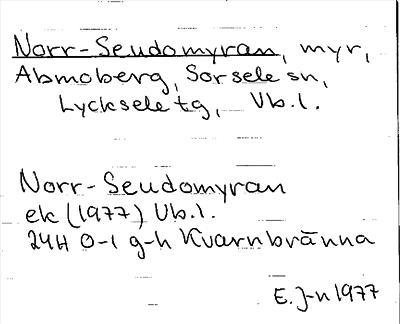 Norr-Seudomyran, myr,
Abmoberg, Sorsele sn,
Lycksele tg, Vb.l.
Norr-Seudomyran
ek (1977) Vb.l.
24H 0-1 g-h Kvarnbränna
E. J-n 1977